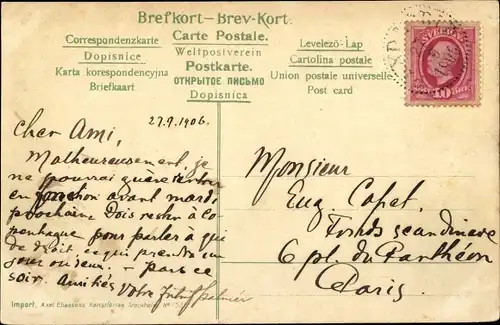 Brefkort–Brev-Kort.
Carte Postale.
Weltpostverein
Postkarte.
ОТКРЫТОЕ ПИСЬМО
Dopisnica
Correspondenzkarte
Dopisnice
Karta korespondencyjna
Briefkaart
Levelező-Lap
Cartolina postale
Union postale universelle
Post card
SVERIGE
10
27.9.1906.
Cher Ami,
Malheureusement, je
ne pourrai guère rentrer
en fonction avant mardi
prochain. Dois rester à Co-
penhague pour parler à qui
de droit ce qui prendra un
jour ou deux. – Pars ce
soir. Amitiés Votre
Monsieur
Eug. Capet.
Fonds scandinave
6 pl. du Panthéon
Paris.
Import. Axel Eliassons Konstförlag Stockholm